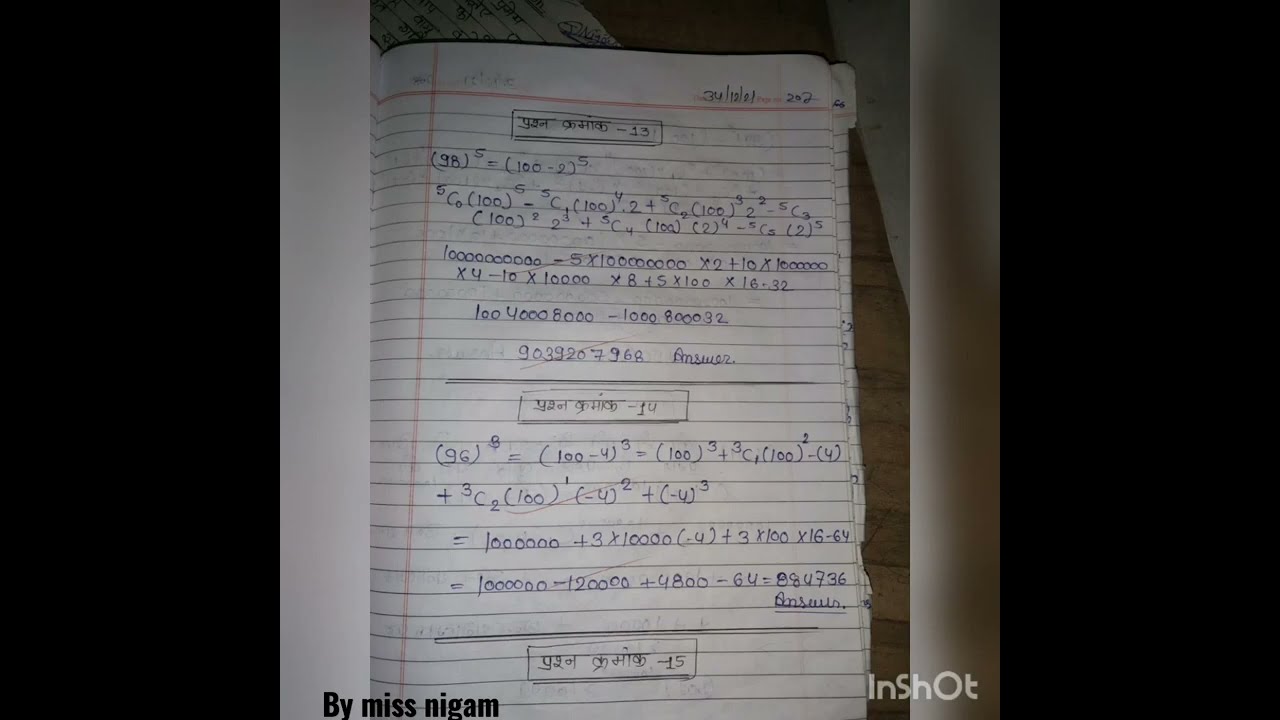 34/12/21 207
प्रश्न क्रमांक -13
(98)⁵ = (100-2)⁵.
⁵C₀(100)⁵ - ⁵C₁(100)⁴.2 + ⁵C₂(100)³2² - ⁵C₃
(100)² 2³ + ⁵C₄ (100) (2)⁴ - ⁵C₅ (2)⁵
10000000000 - 5×100000000 ×2+10×1000000
×4-10×10000 ×8+5×100 ×16-32
10040008000 -1000800032
9039207968 Answer.
प्रश्न क्रमांक -14
(96)³ = (100-4)³ = (100)³+³C₁(100)²-(4)
+ ³C₂(100)¹(-4)² +(-4)³
= 1000000 +3×10000(-4)+3×100×16-64
= 1000000-120000+4800-64=884736
Answer.
प्रश्न क्रमांक -15
By miss nigam
InShOt